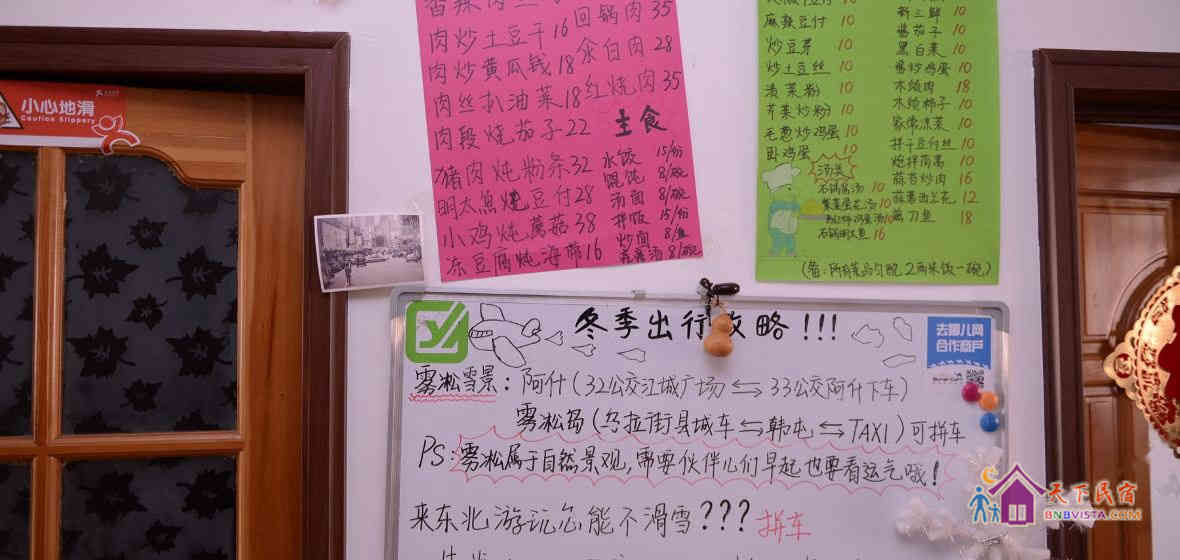 小心地滑
Caution Slippery
回锅肉 35
肉炒土豆干 16
汆白肉 28
肉炒黄瓜钱 18
红烧肉 35
肉丝扒油菜 18
肉段烧茄子 22
主食
猪肉炖粉条 32
水饺 15/份
明太鱼炖豆付 28
馄饨 8/碗
汤面 8/碗
小鸡炖蘑菇 38
拌饭 15/份
冻豆腐炖海带 16
炒面
麻辣豆付 10
炒豆芽 10
炒土豆丝 10
渍菜粉 10
芹菜炒粉 10
毛葱炒鸡蛋 10
卧鸡蛋 10
汤类
石锅酱汤 10
紫菜蛋花汤 10
石锅明太鱼 16
新三鲜 10
酱茄子 10
黑白菜 10
酱炒鸡蛋 10
木须肉 18
木须柿子 10
家常凉菜 10
拌干豆付丝 10
炝拌茼蒿 10
蒜苔炒肉 16
蒜薹西兰花 12
刀鱼 18
(备:所有菜品匀配2两米饭一碗)
冬季出行攻略!!!
去哪儿网
合作商户
雾凇雪景:阿什(32公交江城广场⇆33公交阿什下车)
雾凇岛(乌拉街县城车⇆韩屯⇆TAXI)可拼车
PS:雾凇属于自然景观,需要伙伴儿们早起也要看运气哦!
来东北游玩怎能不滑雪??? 拼车
天下民宿
BNBVISTA.COM